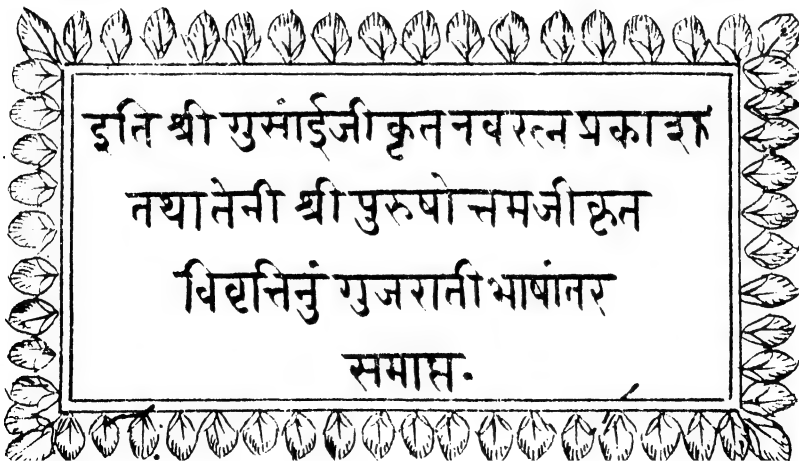 इति श्री गुसांईजीकृत नवरत्न प्रकाश
तथा तेनी श्री पुरुषोत्तमजीकृत
विवृत्तिनुं गुजराती भाषांतर
समाप्त.